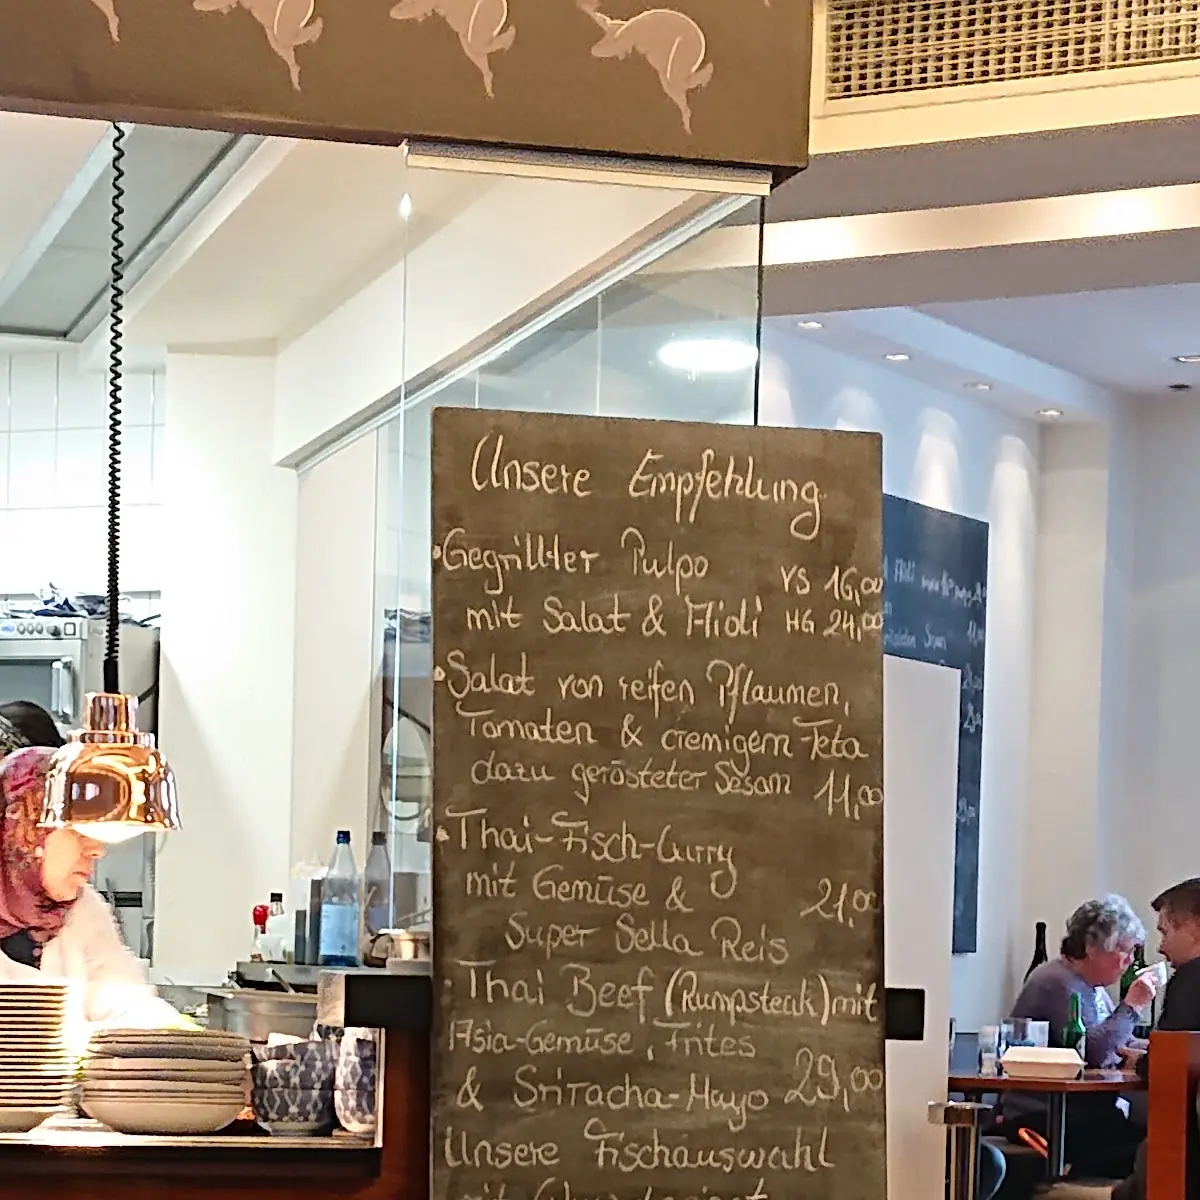 Unsere Empfehlung
•Gegrillter Pulpo VS 16,00
mit Salat & Aioli HG 24,00
•Salat von reifen Pflaumen,
Tomaten & cremigem Feta
dazu gerösteter Sesam 11,00
•Thai-Fisch-Curry
mit Gemüse & 21,00
Super Sella Reis
•Thai Beef (Rumpsteak) mit
Asia-Gemüse, Frites
& Sriracha-Mayo 29,00
Unsere Fischauswahl